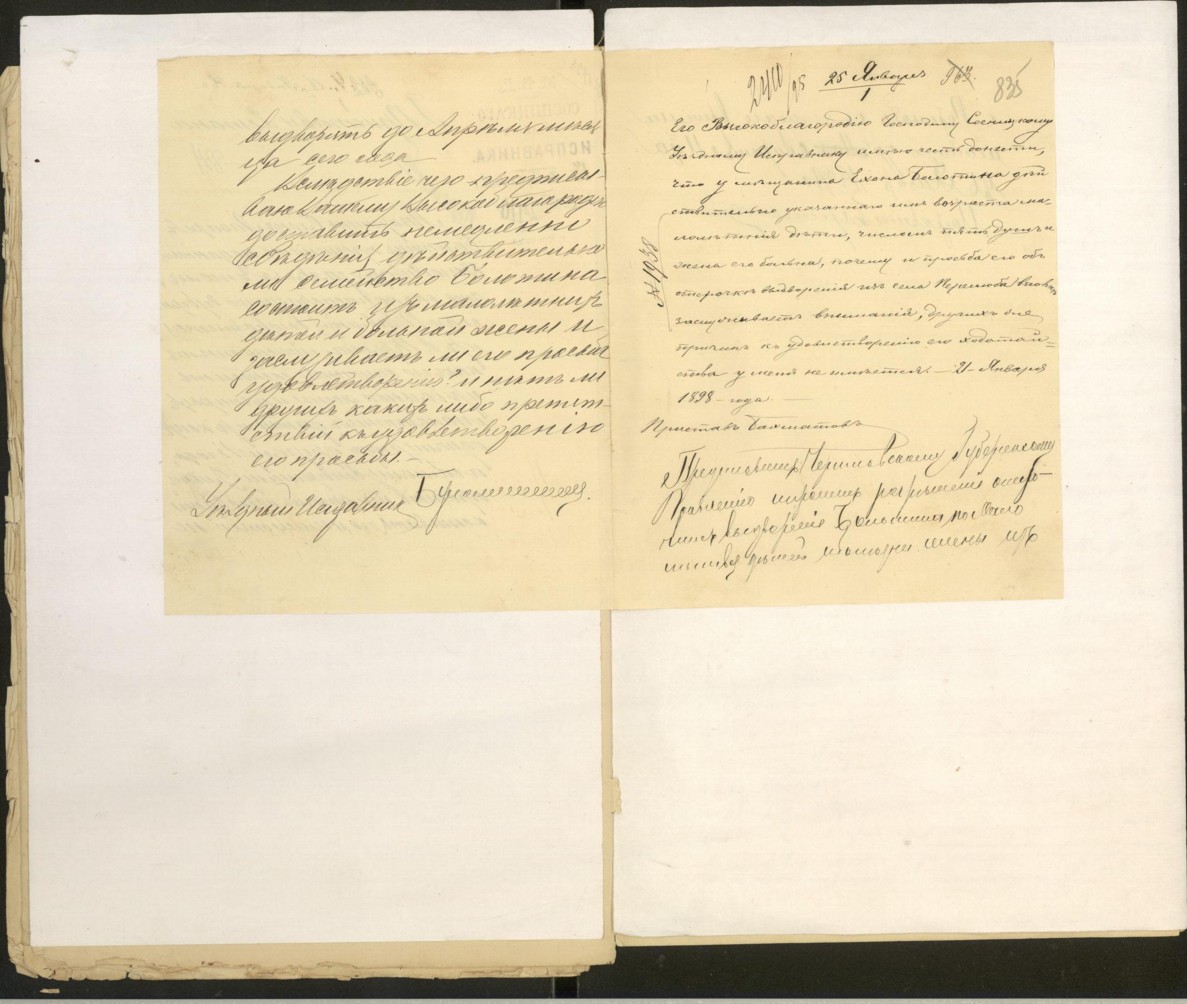 выдворять до Апреля мѣся
ца сего года
Вслѣдствіе чего предписы-
ваю Вашему Высокоблагородію
доставить немедленно
свѣдѣнія, дѣйствительно
ли семейство Болотина
состоитъ изъ малолѣтнихъ
дѣтей и больной жены и
заслуживаетъ ли его просьба
удовлетворенія? и нѣтъ ли
другихъ какихъ либо препят-
ствій къ удовлетворенію
его просьбы. —
Уѣздный Исправникъ
2410/98
25 Января
1
963.
835
Его Высокоблагородію Господину Сосницкому
Уѣздному Исправнику имѣю честь донести,
что у мѣщанина Ехона Болотина дѣй
ствительно указаннаго имъ возраста ма-
лолѣтнія дѣти, числомъ пять душъ и
жена его больна, почему и просьба его объ
отсрочкѣ выдворенія изъ села
заслуживаетъ вниманія, другихъ же
причинъ къ удовлетворенію его ходатай=
ства у меня не имѣется. — 21 Января
1898 года. —
№ 1938
Приставъ Бахматовъ
Черниговскому Губернскому
Правленію разрѣшенія
выдвореніе Болотина, по мало
дѣтей и жены изъ